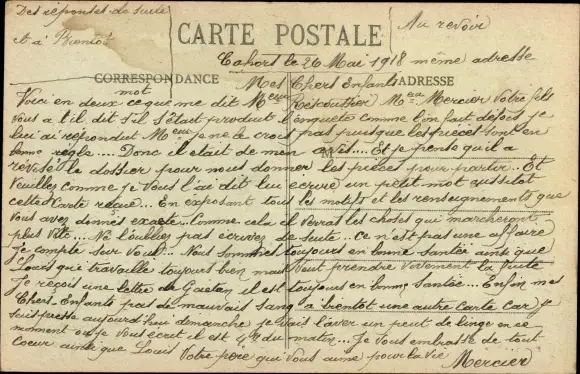 Des réponses de suite
et à Bientôt
Au revoir
CARTE POSTALE
Cahors le 26 Mai 1918 même adresse
CORRESPONDANCE
ADRESSE
Mes Chers Enfants
Voici en deux mot ce que me dit Mr Mercier Votre fils
Vous a t'il dit s'il s'était produit l'enquete comme l'on fait defois Je
lui ai repondut je ne le crois pas puisque les pieces sont en
bonne règle.... Donc il était de mon avis.... Et je pense qu'il a
révisé le dossier pour nous donner les pièces pour partir.. Et
Veuillez comme je vous l'ai dit lui ecrire un petit mot aussitot
cette Carte reçue... En exposant tous les motifs et les renseignements que
Vous avez donnés exacte. Comme cela il verrat les choses qui marcheront
plus vite... Ne l'oubliez pas ecrivez de suite.. Ce n'est pas une affaire
Je compte sur Vous.. Nous sommes toujours en bonne santée ainsi que
Louis qui travaille toujours bien mais veut prendre vivement la suite
Je reçois une lettre de Gaetan il est toujours en bonne Santée... Enfin mes
Chers Enfants pas de mauvais sang a bientot une autre Carte Car je
suis presse aujourd'hui dimanche je vais laver un peut de linge en ce
moment ou je vous ecrit il est 4h du matin... Je vous embrasse de tout
Coeur ainsi que Louis Votre père qui vous aime pour la vie
Mercier